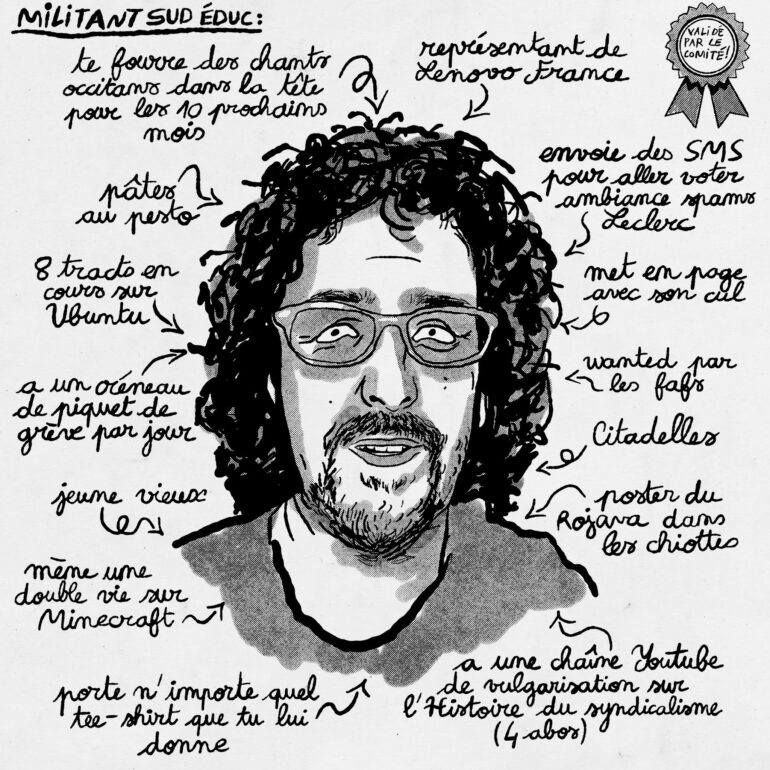 MILITANT SUD ÉDUC:
VALIDÉ
PAR LE
COMITÉ!
te fourre des chants
occitans dans la tête
pour les 10 prochains
mois
représentant de
Lenovo France
pâtes
au pesto
envoie des SMS
pour aller voter
ambiance spams
Leclerc
8 tracts en
cours sur
Ubuntu
met en page
avec son cul
a un créneau
de piquet de
grève par jour
wanted par
les fafs
Citadelles
jeune vieux
poster du
Rojava dans
les chiottes
mène une
double vie sur
Minecraft
porte n'importe quel
tee-shirt que tu lui
donne
a une chaîne Youtube
de vulgarisation sur
l'Histoire du syndicalisme
(4 abos)